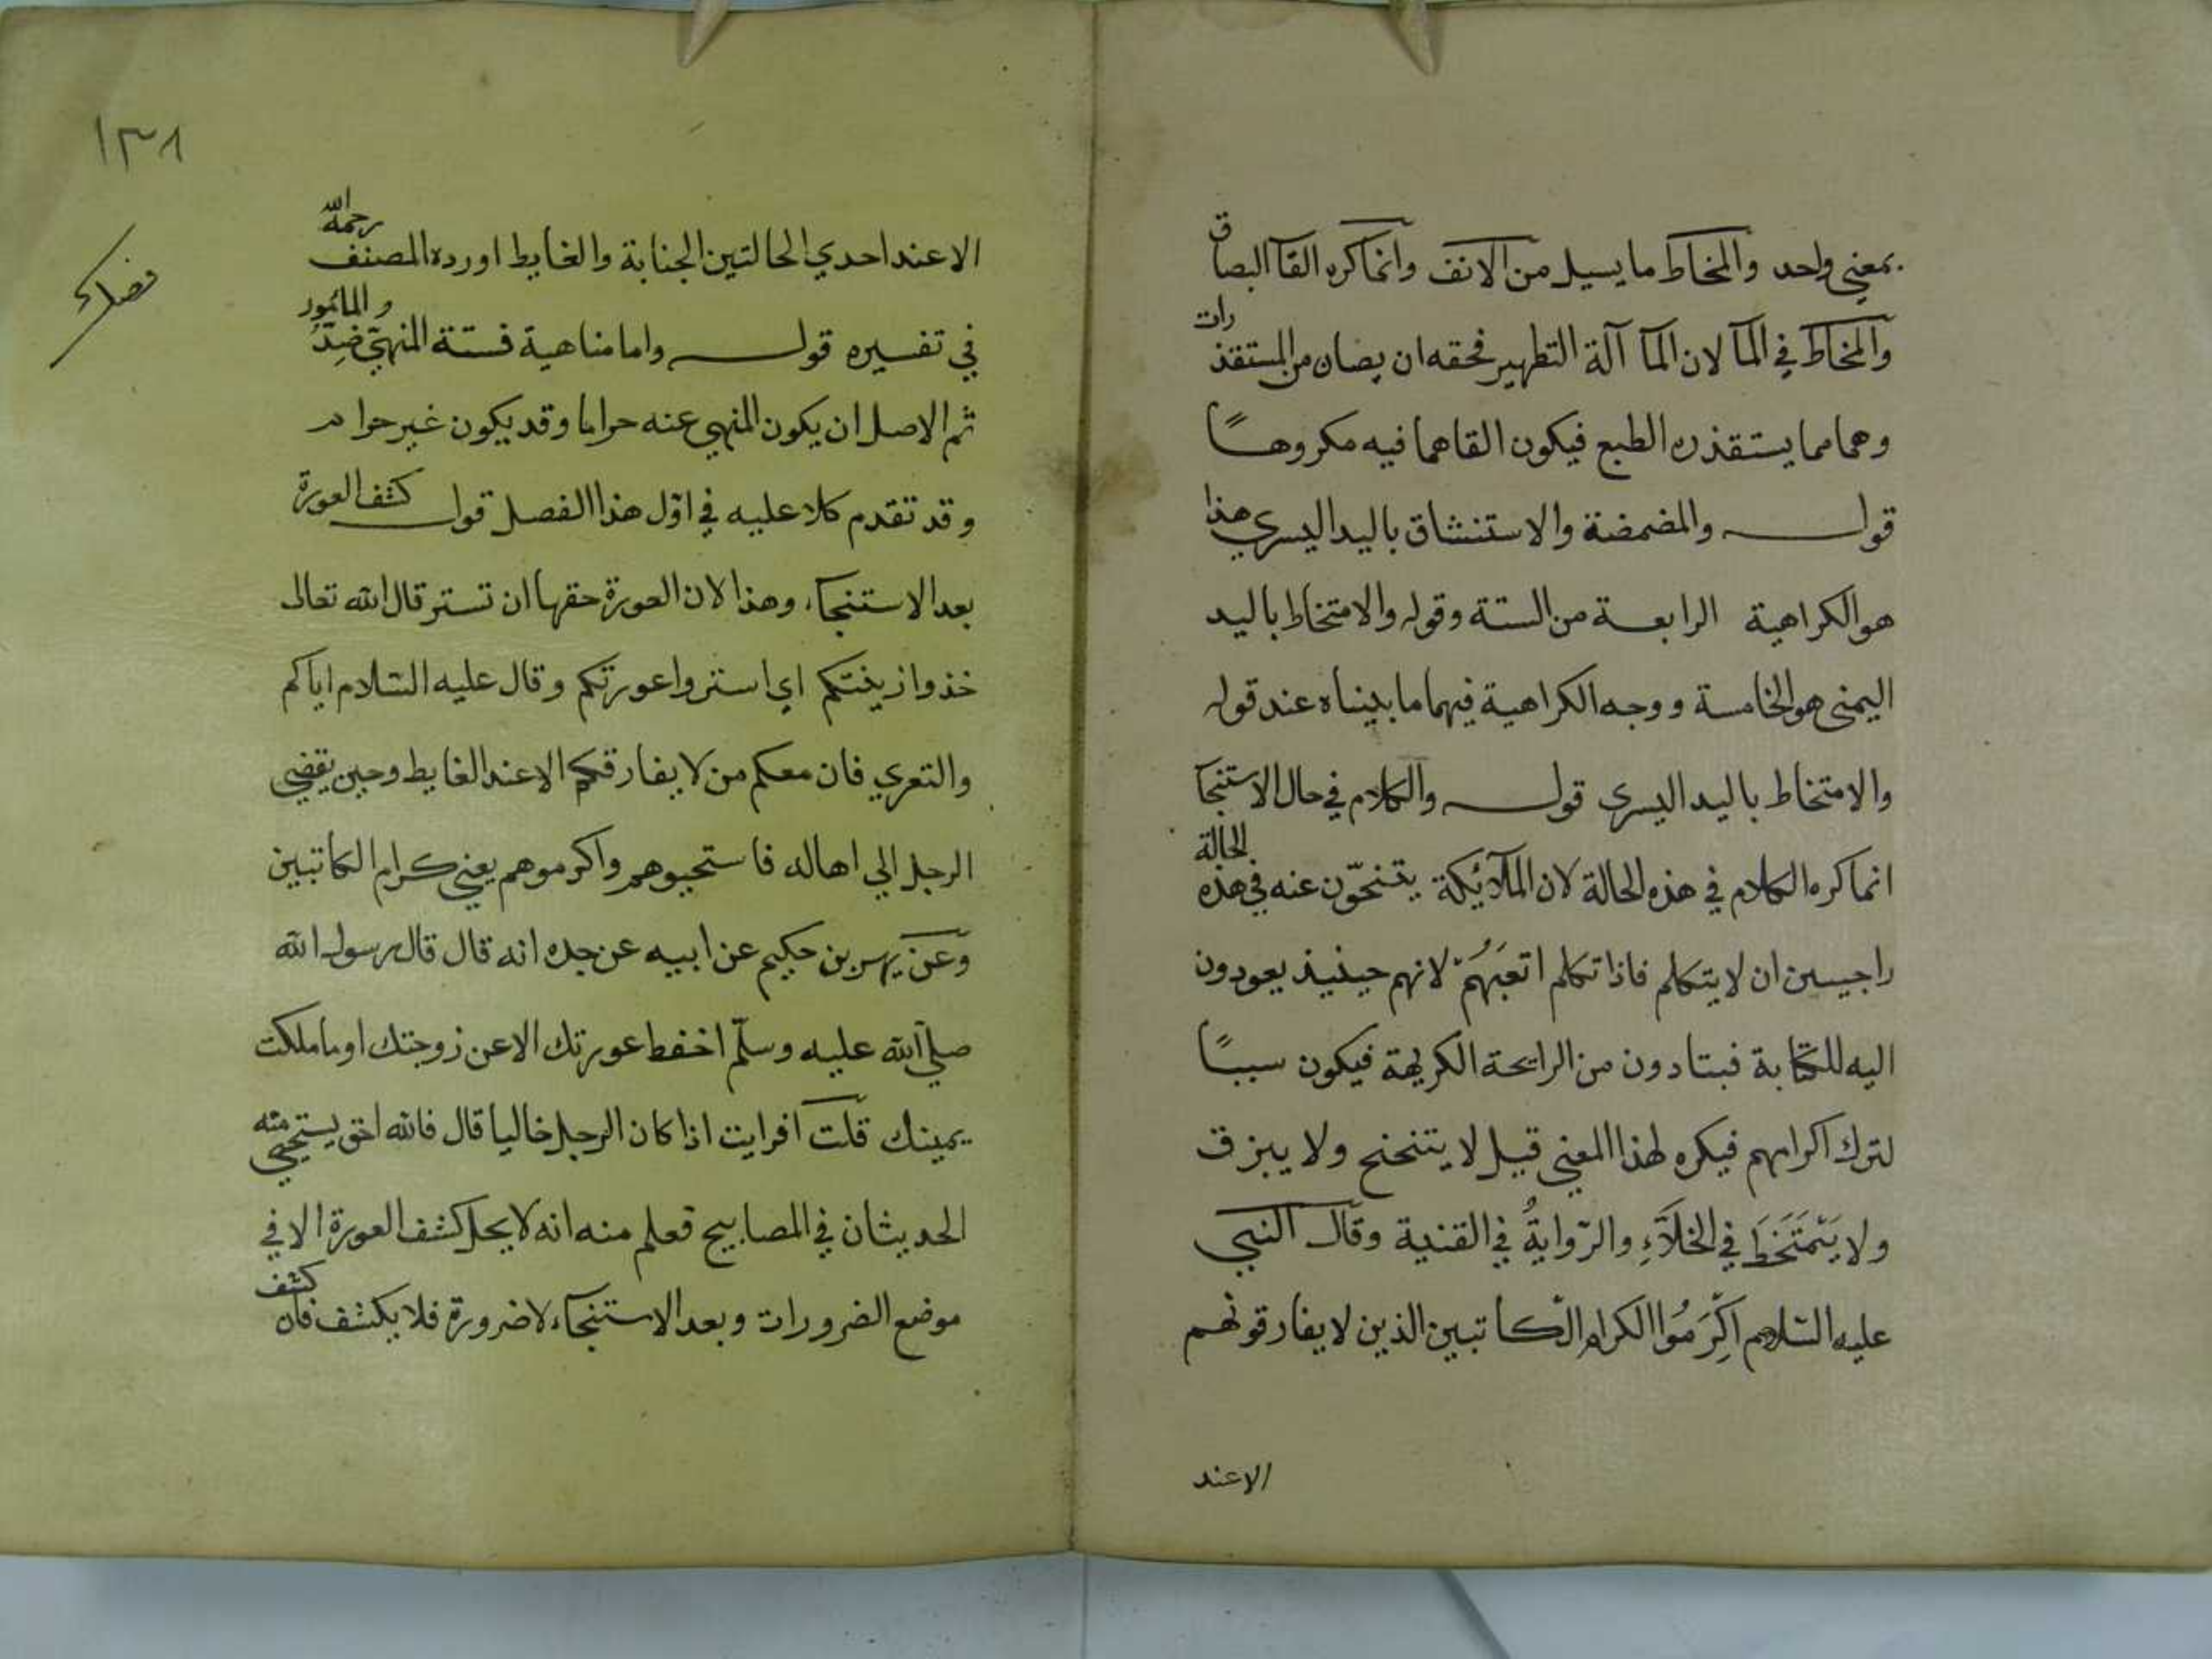 بمعني واحد والمخاط ما يسيل من الانف وانما كره القآ البصاق
والمخاط في المآ لان المآ آلة التطهير فحقه ان يصان من المستقذرات
وهما مما يستقذره الطبع فيكون القاهما فيه مكروهًا
قولـــه والمضمضة والاستنشاق باليد اليسري هذا
هو الكراهية الرابعة من الستة وقوله والامتخاط باليد
اليمنى هو الخامسة ووجه الكراهية فيهما ما بيناه عند قوله
والامتخاط باليد اليسرى قولـــه والكلام في حال الاستنجآ
انما كره الكلام في هذه الحالة لان الملآئكة يتنحّون عنه في هذه الحالة
راجيين ان لا يتكلم فاذا تكلم اتعَبَهُمْ لانهم حينيذ يعودون
اليه للكتابة فيتادون من الرايحة الكريهة فيكون سببًا
لترك اكرامهم فيكره لهذا المعني قيل لا يتنحنح ولا يبزق
ولا يَتَمَخَّطَ في الخلآءِ والرّوايةُ في القنية وقال النبي
عليه السلام اكرِمُوا الكرام الكاتبين الذين لا يفارقونهم
الاعند
١٣٨
الاعند احدي الحالتين الجنابة والغايط اورده المصنف رحمه الله
في تفسيره قولـــه واما مناهية فستة المنهيّ ضِدُّ والمأمور
ثم الاصل ان يكون المنهي عنه حراما وقد يكون غير حرام
وقد تقدم كلا عليه في اوّل هذا الفصل قولـــه كشف العورة
بعد الاستنجآء وهذا لان العورة حقها ان تستر قال الله تعالى
خذوا زينتكم اي استروا عورتكم وقال عليه السلام اياكم
والتعري فان معكم من لا يفارقكم الاعند الغايط وحين يقضي
الرجل الي اهاله فاستحيوهم واكرموهم يعني كرام الكاتبين
وعن بهس بن حكيم عن ابيه عن جده انه قال قال رسول الله
صلي الله عليه وسلّم احفظ عورتك الا عن زوجتك او ما ملكت
يمينك قلت افرايت اذا كان الرجل خاليا قال فالله احق يستحيي منه
الحديثان في المصابيح فعلم منه انه لا يحل كشف العورة الا في
موضع الضرورات وبعد الاستنجآء لا ضرورة فلا يكشف فان كشف